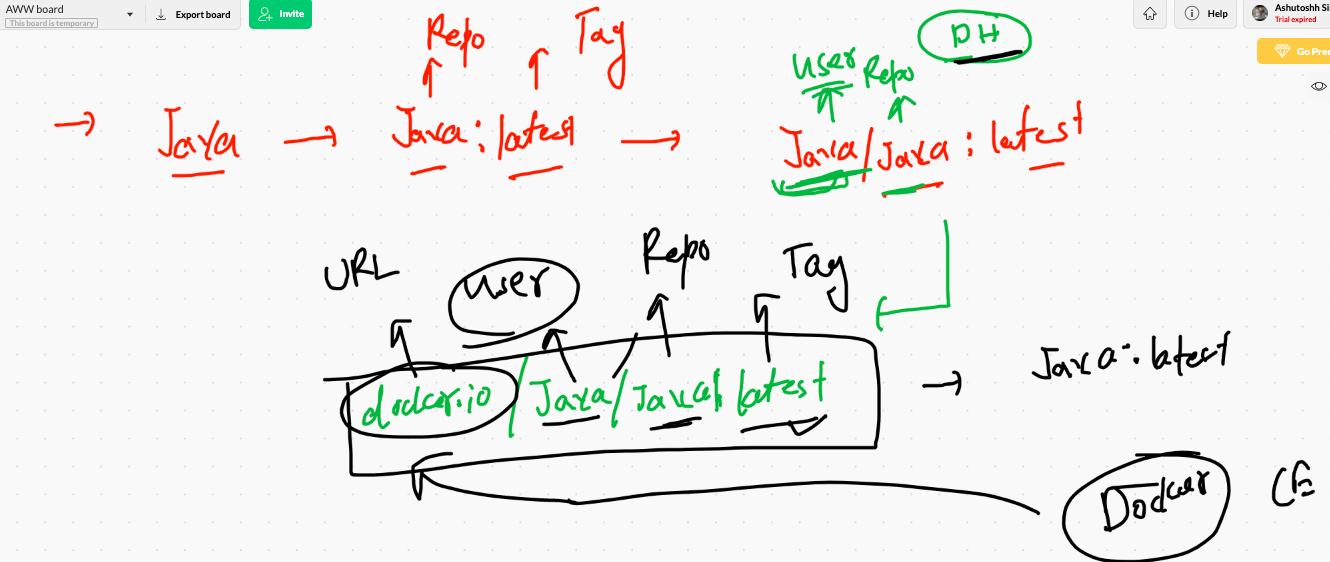 AWW board
This board is temporary
Export board
Invite
Help
Ashutoshh Si
Trial expired
Go Pre
Repo Tag
DH
User Repo
→ Java → Java : latest → Java/Java : latest
URL User Repo Tag
docker.io / Java / Java : latest → Java : latest
Docker CE